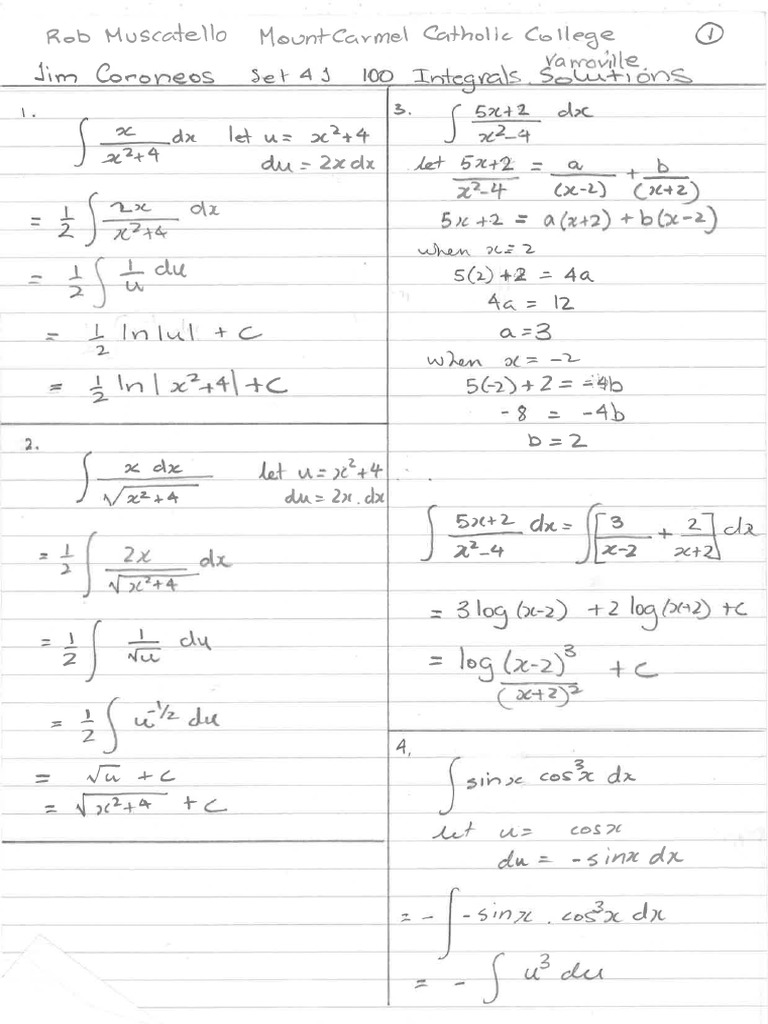 Rob Muscatello Mount Carmel Catholic College ①
Varroville
Jim Coroneos Set 4J 100 Integrals Solutions
1.
∫ x/(x²+4) dx let u = x²+4
du = 2x dx
= 1/2 ∫ 2x/(x²+4) dx
= 1/2 ∫ 1/u du
= 1/2 ln|u| + C
= 1/2 ln|x²+4| + C
2.
∫ x dx/√(x²+4) let u = x²+4
du = 2x.dx
= 1/2 ∫ 2x/√(x²+4) dx
= 1/2 ∫ 1/√u du
= 1/2 ∫ u^(-1/2) du
= √u + C
= √(x²+4) + C
3.
∫ (5x+2)/(x²-4) dx
let (5x+2)/(x²-4) = a/(x-2) + b/(x+2)
5x+2 = a(x+2) + b(x-2)
when x = 2
5(2)+2 = 4a
4a = 12
a = 3
when x = -2
5(-2)+2 = -4b
-8 = -4b
b = 2
∫ (5x+2)/(x²-4) dx = ∫[3/(x-2) + 2/(x+2)] dx
= 3 log(x-2) + 2 log(x+2) + C
= log (x-2)³/(x+2)² + C
4,
∫ sinx cos³x dx
let u = cosx
du = -sinx dx
= - ∫ -sinx . cos³x dx
= - ∫ u³ du